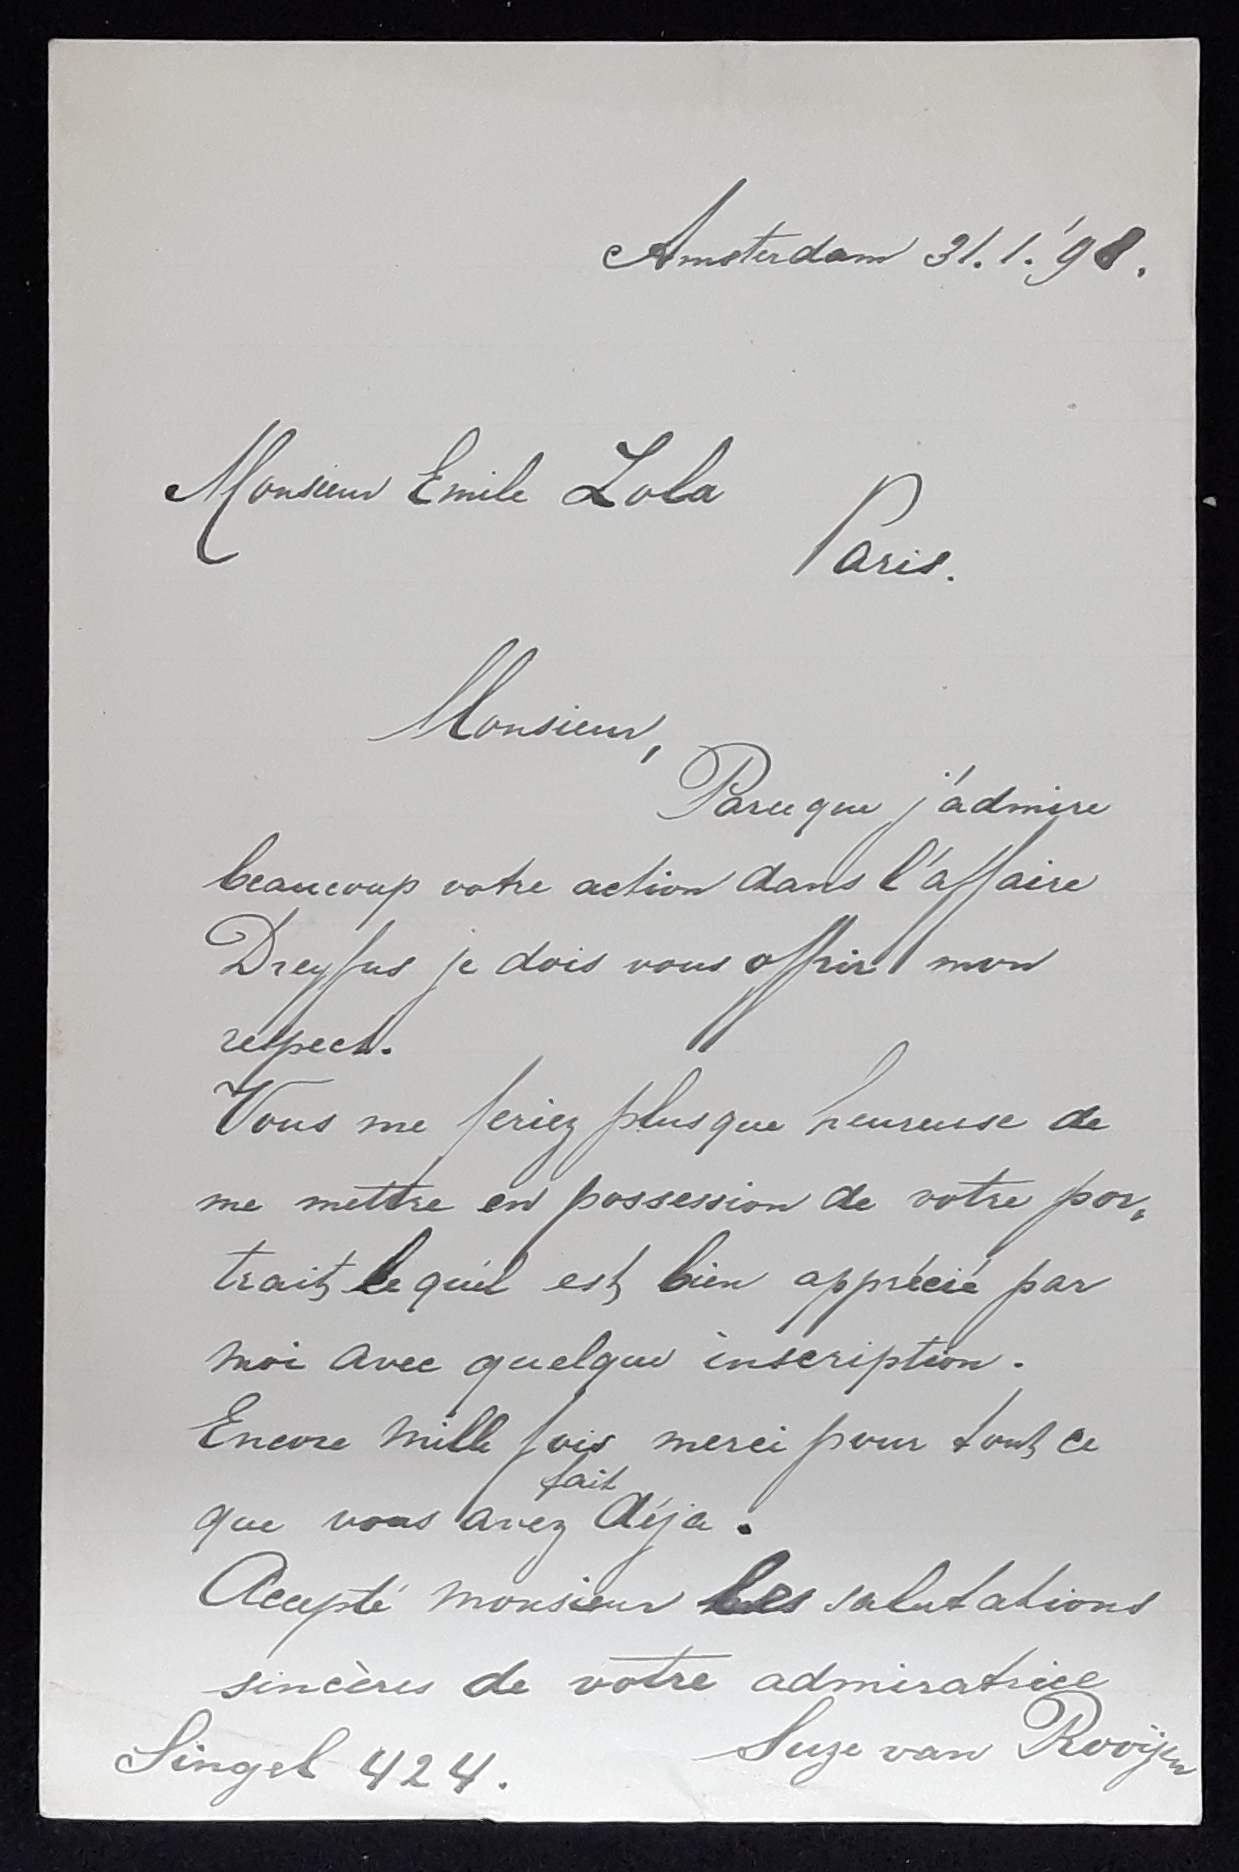 Amsterdam 31.1.'98.
Monsieur Emile Zola
Paris.
Monsieur,
Parceque j'admire
beaucoup votre action dans l'affaire
Dreyfus je dois vous offrir mon
respect.
Vous me feriez plusque heureuse de
me mettre en possession de votre por„
trait, lequel est bien apprécié par
moi avec quelque inscription.
Encore mille fois merci pour tout ce
fait
que vous avez déja.
Accepté monsieur les salutations
sincères de votre admiratrice
Suze van Rooijen
Singel 424.